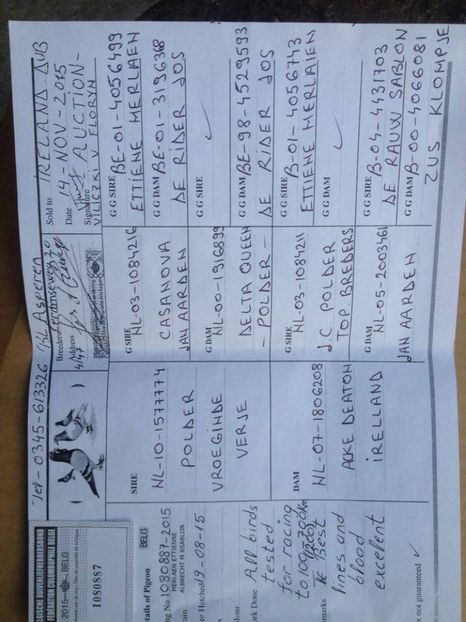 Tel- 0345-613326
BELG
2015-
BELG
1080887
Details of Pigeon
Ring No. 1080887-2015
MERLAEN ETTIENNE
ALBRECHT M KSABLON
Date Hatched 19-08-15
Colour
Work Done All birds
tested
for racing
The Best
lines and
blood
excellent
not guaranteed ✓
SIRE
NL-10-1577774
POLDER
VROEGINDE
VERJE
DAM
NL-07-1806208
ACKE DEATON
IRELLAND
Breeder
Address
4147
G SIRE
NL-03-1084216
CASANOVA
JAN AARDEN
G DAM
NL-00-1916899
DELTA QUEEN
- POLDER -
G SIRE
NL-03-1084211
J.C POLDER
TOP BREDERS
G DAM
NL-05-2003461
JAN AARDEN
Sold to IRELAND
Date 14-NOV-2015
Signature AUCTION-
VILICZKI V FLORYN
G G SIRE BE-01-4056499
ETTIENE MERLAEN
G G DAM BE-01-3196368
DE RIDER JOS
G G SIRE
✓
G G DAM BE-98-4529593
DE RIDER JOS
G G SIRE B-01-4056743
ETTIENE MERLAIEN
G G DAM
✓
G G SIRE B-04-4431703
DE RAUW SABLON
G G DAM B-00-4066081
ZUS KLOMPJE